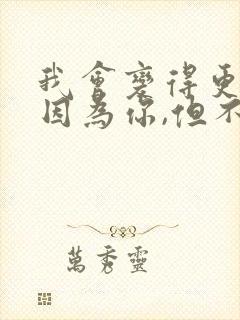 我會變得更
因為你,但不
萬秀靈